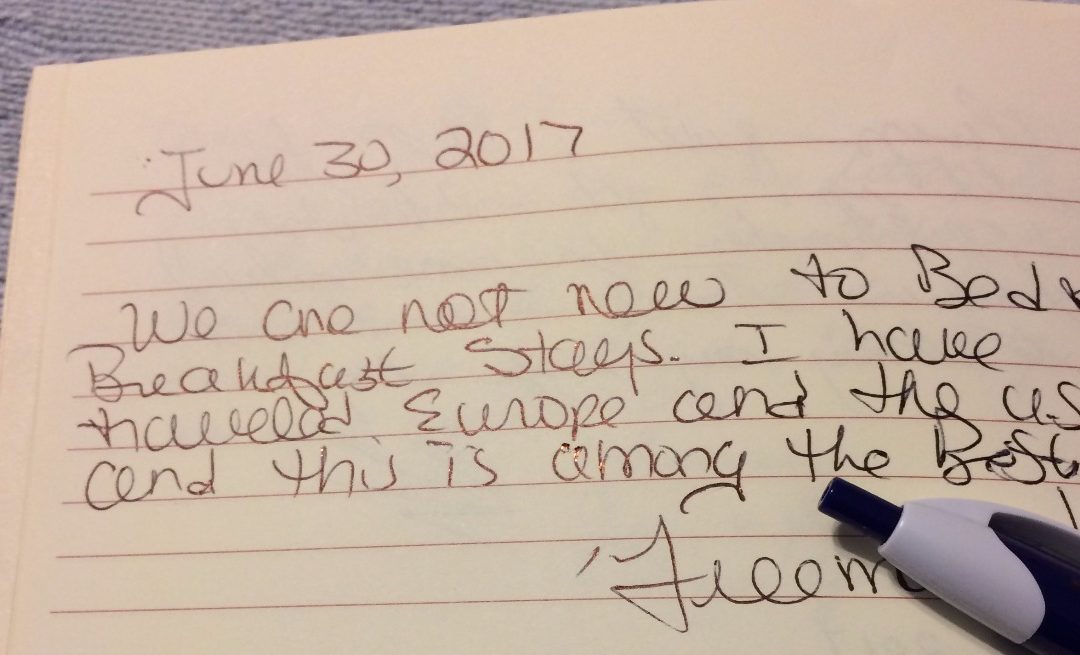 June 30, 2017
We are not new to Bed &
Breakfast Stays. I have
traveled Europe and the US
and this is among the Best.